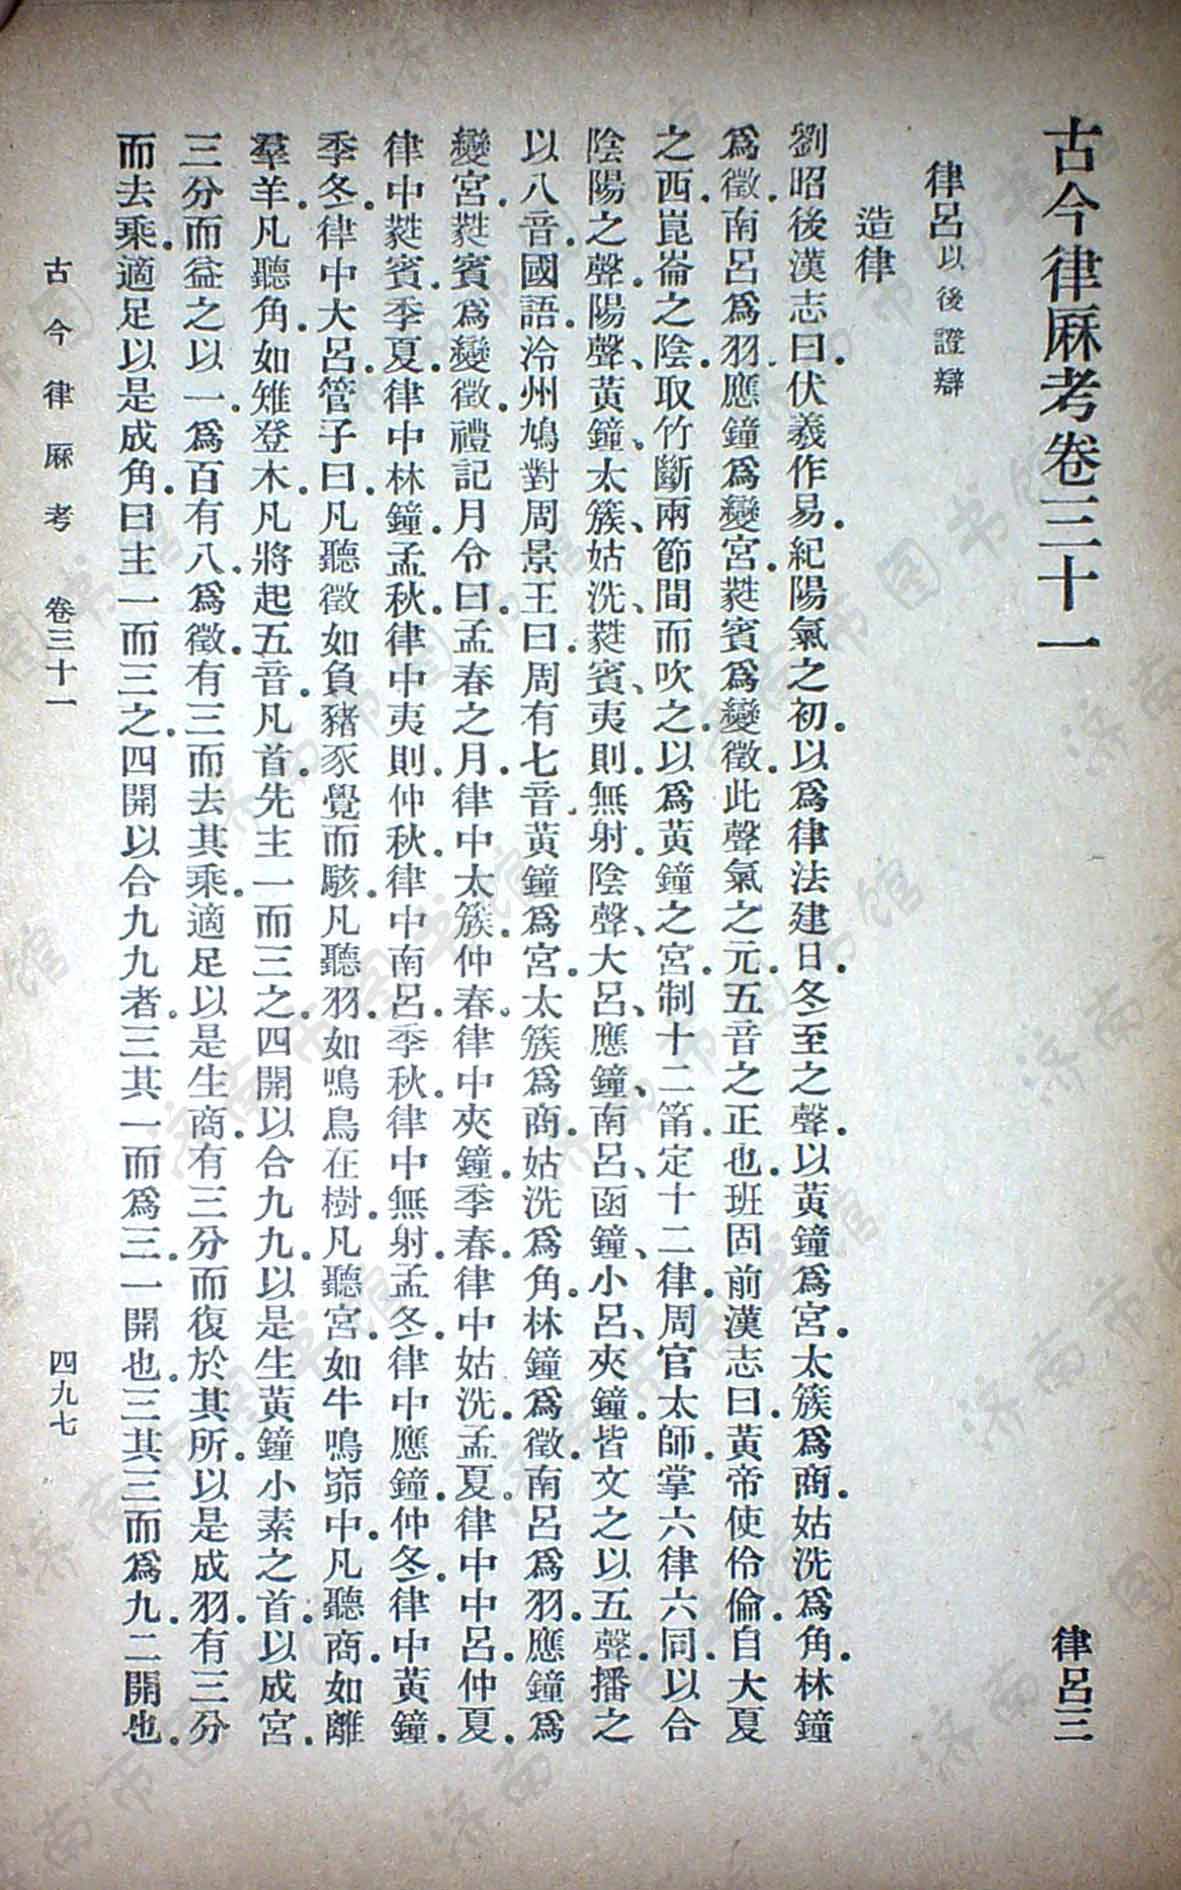 古今律厤考卷三十一
律呂三
律呂以後證辯
造律
劉昭後漢志曰。伏羲作易。紀陽氣之初。以爲律法建日。冬至之聲。以黃鐘爲宮。太簇爲商。姑洗爲角。林鐘
爲徵。南呂爲羽應鐘爲變宮。蕤賓爲變徵。此聲氣之元。五音之正也。班固前漢志曰。黃帝使伶倫。自大夏
之西。崑崙之陰。取竹斷兩節間而吹之。以爲黃鐘之宮。制十二筩。定十二律。周官太師。掌六律六同。以合
陰陽之聲。陽聲、黃鐘、太簇、姑洗、蕤賓、夷則。無射。陰聲、大呂、應鐘、南呂、函鐘、小呂、夾鐘。皆文之以五聲。播之
以八音。國語。泠州鳩對周景王曰。周有七音。黃鐘爲宮。太簇爲商。姑洗爲角。林鐘爲徵。南呂爲羽。應鐘爲
變宮。蕤賓爲變徵。禮記月令曰。孟春之月。律中太簇。仲春。律中夾鐘。季春。律中姑洗。孟夏。律中中呂。仲夏。
律中蕤賓。季夏。律中林鐘。孟秋。律中夷則。仲秋。律中南呂。季秋。律中無射。孟冬。律中應鐘。仲冬。律中黃鐘。
季冬。律中大呂。管子曰。凡聽徵如負豬豕覺而駭。凡聽羽。如鳴鳥在樹。凡聽宮。如牛鳴窌中。凡聽商。如離
羣羊。凡聽角。如雉登木。凡將起五音。凡首。先主一而三之。四開以合九九。以是生黃鐘小素之首。以成宮。
三分而益之以一。爲百有八。爲徵。有三而去其乘。適足以是生商。有三分而復於其所。以是成羽。有三分
而去乘。適足以是成角。曰主一而三之。四開以合九九者。三其一而爲三。一開也。三其三而爲九。二開也。
古今律厤考 卷三十一 四九七
济南市图书馆